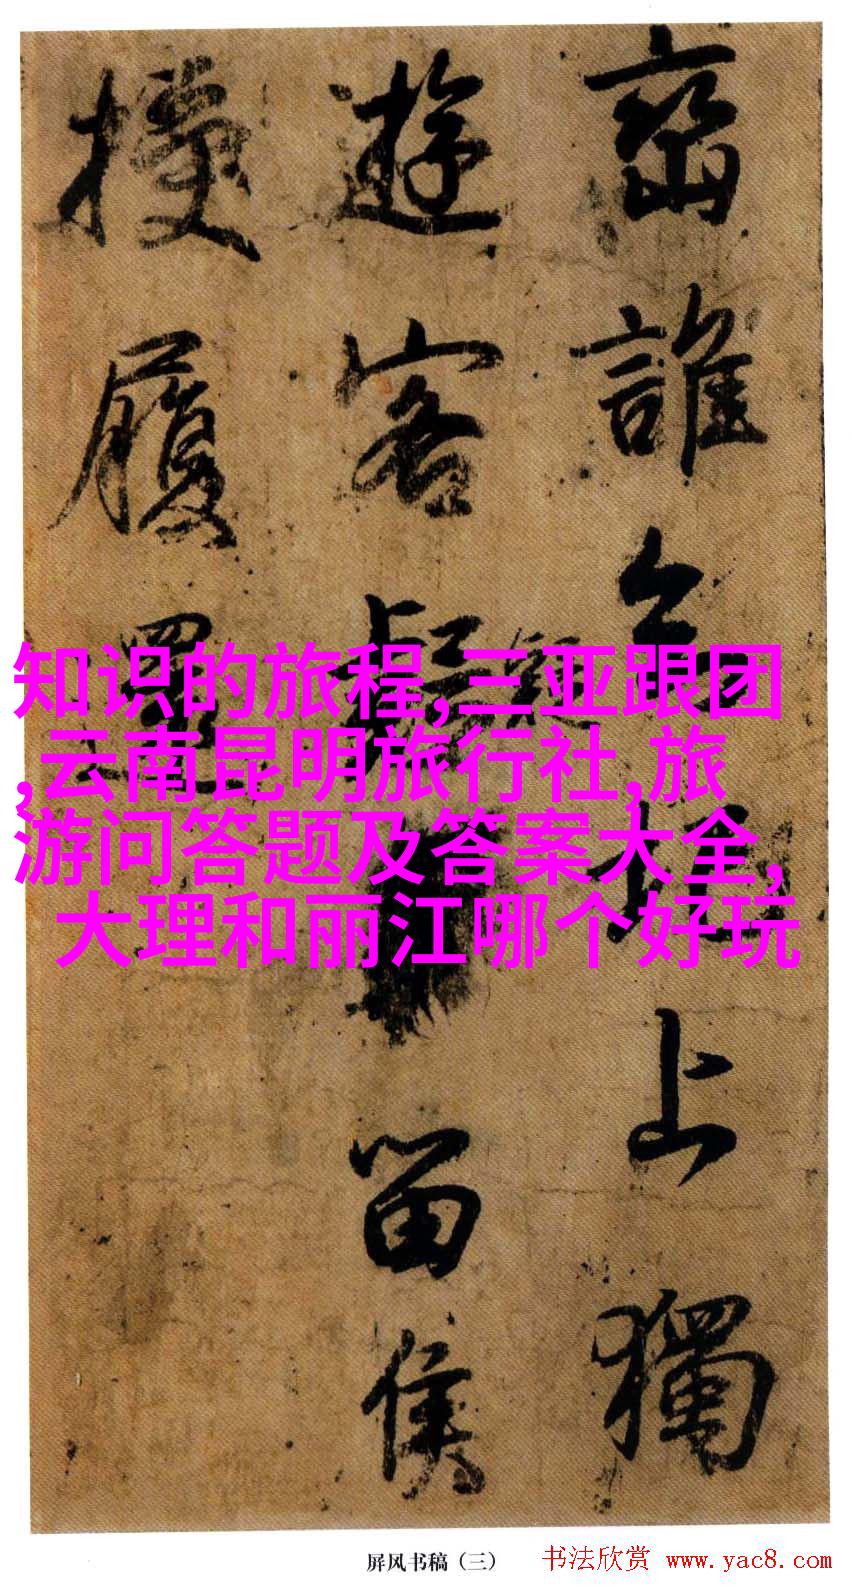 峦誰上獨
遊客留侯
履
知识的旅程,三亚跟团
,云南昆明旅行社,旅
游问答题及答案大全,
大理和丽江哪个好玩
屏风书稿(三)
书法欣赏 www.yac8.com